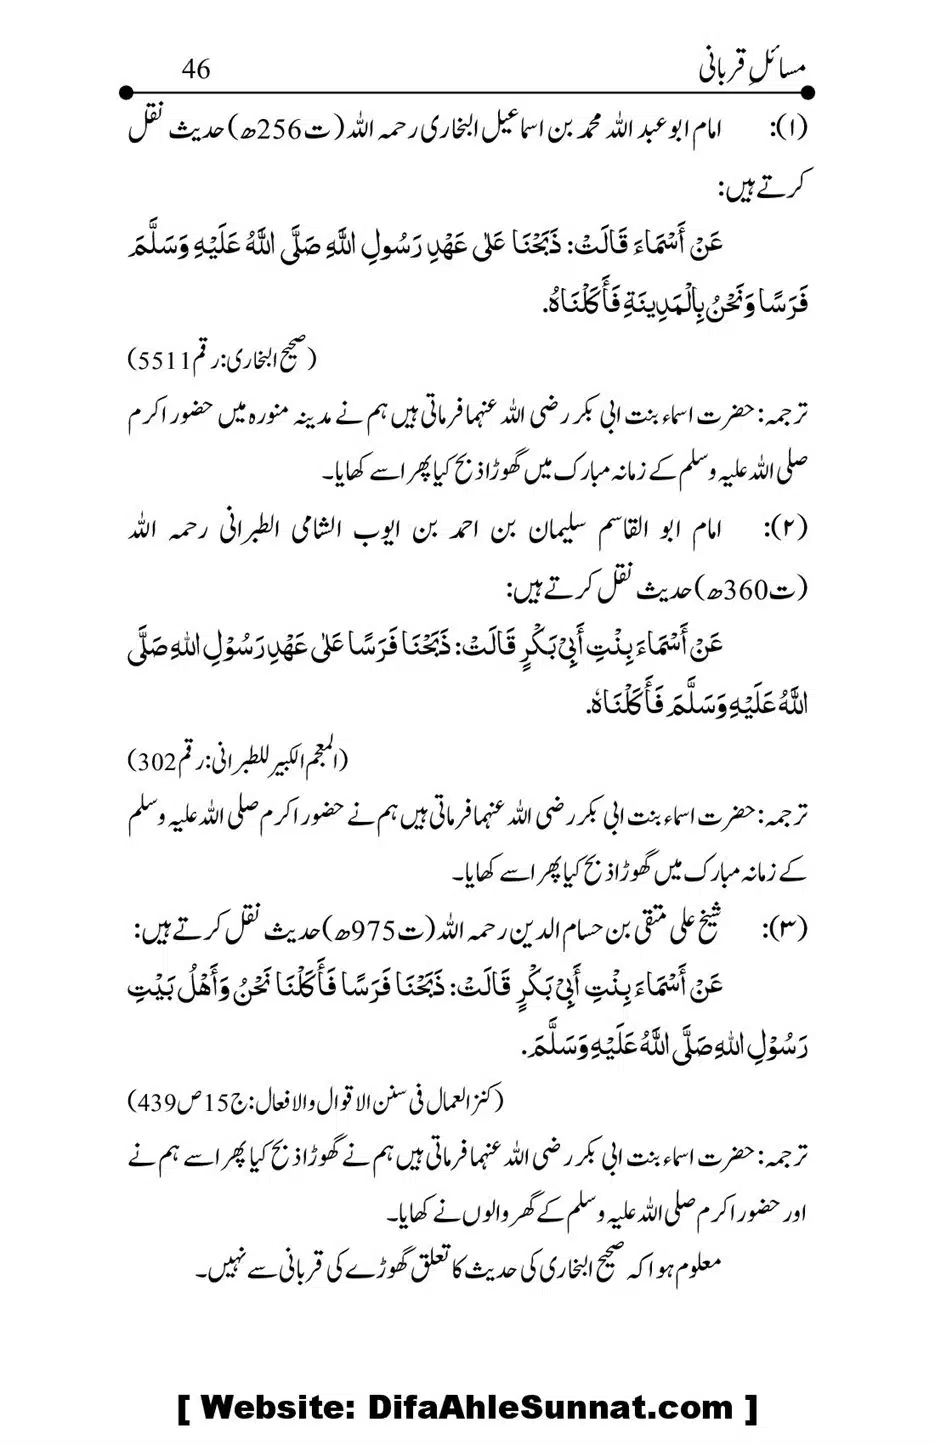 مسائلِ قربانی 46
(۱): امام ابو عبد اللہ محمد بن اسماعیل البخاری رحمہ اللہ (ت256ھ) حدیث نقل
کرتے ہیں:
عَنْ أَسْمَاءَ قَالَتْ: ذَبَحْنَا عَلىٰ عَهْدِ رَسُولِ اللَّهِ صَلَّى اللَّهُ عَلَيْهِ وَسَلَّمَ
فَرَسًا وَنَحْنُ بِالْمَدِينَةِ فَأَكَلْنَاهُ.
(صحیح البخاری: رقم 5511)
ترجمہ: حضرت اسماء بنت ابی بکر رضی اللہ عنہما فرماتی ہیں ہم نے مدینہ منورہ میں حضور اکرم
صلی اللہ علیہ وسلم کے زمانہ مبارک میں گھوڑا ذبح کیا پھر اسے کھایا۔
(۲): امام ابو القاسم سلیمان بن احمد بن ایوب الشامی الطبرانی رحمہ اللہ
(ت360ھ) حدیث نقل کرتے ہیں:
عَنْ أَسْمَاءَ بِنْتِ أَبِيْ بَكْرٍ قَالَتْ: ذَبَحْنَا فَرَسًا عَلىٰ عَهْدِ رَسُوْلِ اللهِ صَلَّى
اللَّهُ عَلَيْهِ وَسَلَّمَ فَأَكَلْنَاهٗ.
(المعجم الکبیر للطبرانی: رقم 302)
ترجمہ: حضرت اسماء بنت ابی بکر رضی اللہ عنہما فرماتی ہیں ہم نے حضور اکرم صلی اللہ علیہ وسلم
کے زمانہ مبارک میں گھوڑا ذبح کیا پھر اسے کھایا۔
(۳): شیخ علی متقی بن حسام الدین رحمہ اللہ (ت975ھ) حدیث نقل کرتے ہیں:
عَنْ أَسْمَاءَ بِنْتِ أَبِيْ بَكْرٍ قَالَتْ: ذَبَحْنَا فَرَسًا فَأَكَلْنَا نَحْنُ وَأَهْلُ بَيْتِ
رَسُوْلِ اللهِ صَلَّى اللَّهُ عَلَيْهِ وَسَلَّمَ.
(کنز العمال فی سنن الاقوال والافعال: ج15 ص439)
ترجمہ: حضرت اسماء بنت ابی بکر رضی اللہ عنہما فرماتی ہیں ہم نے گھوڑا ذبح کیا پھر اسے ہم نے
اور حضور اکرم صلی اللہ علیہ وسلم کے گھر والوں نے کھایا۔
معلوم ہوا کہ صحیح البخاری کی حدیث کا تعلق گھوڑے کی قربانی سے نہیں۔
[ Website: DifaAhleSunnat.com ]